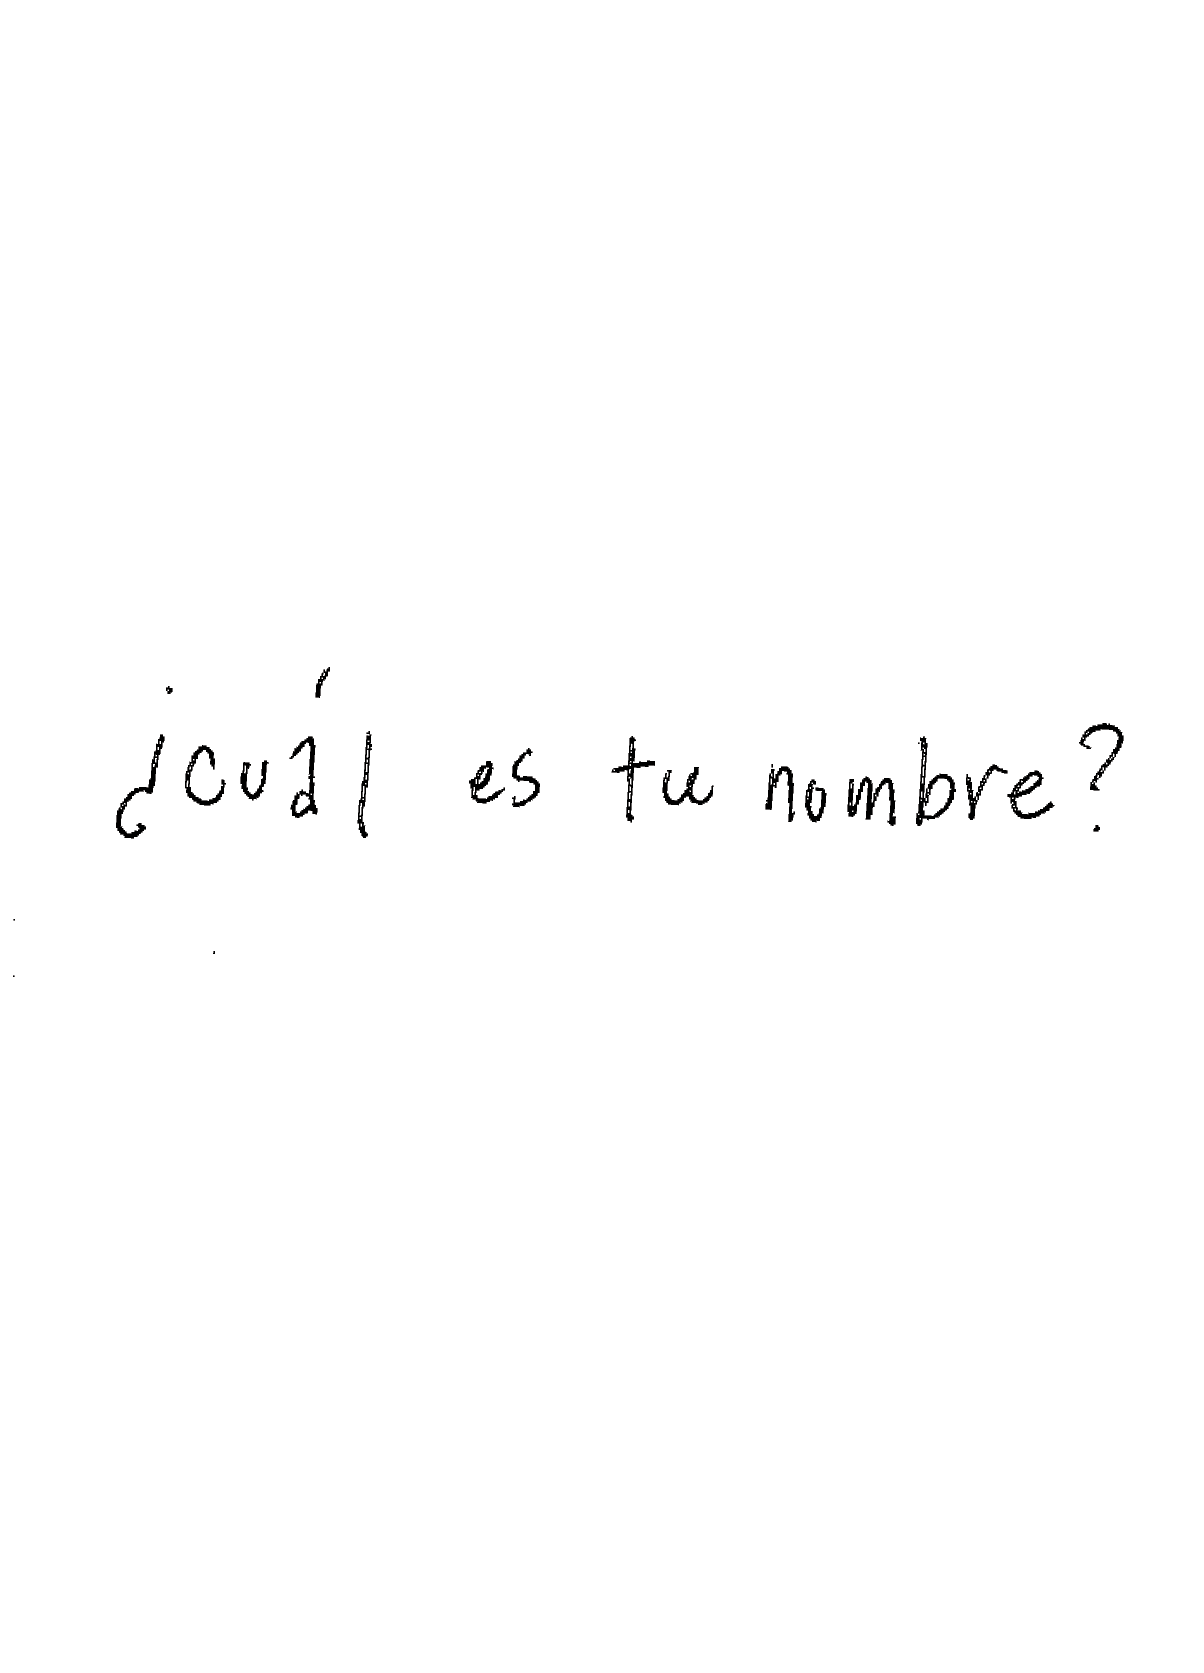 ¿cuál es tu nombre?